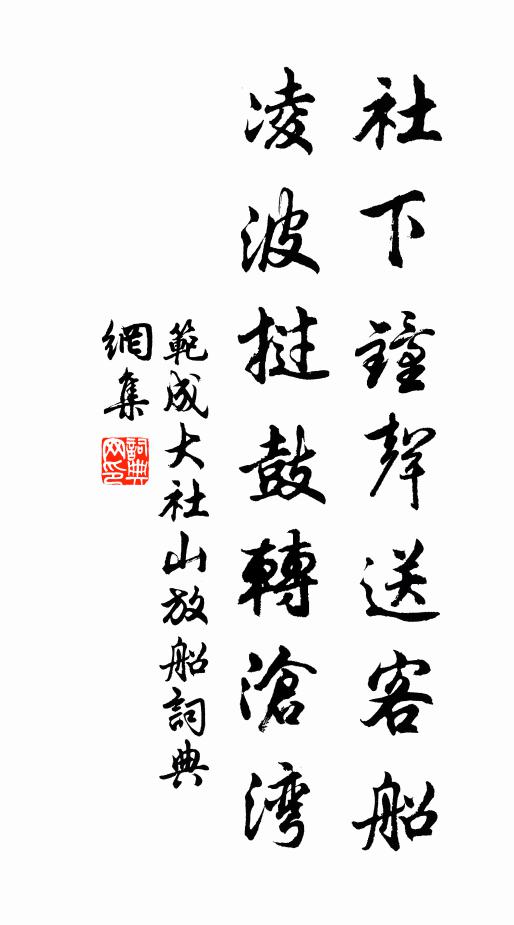 社下鐘聲送客船
凌波撾鼓轉滄湾
範成大社山放船詞典
網集
詞典
网印